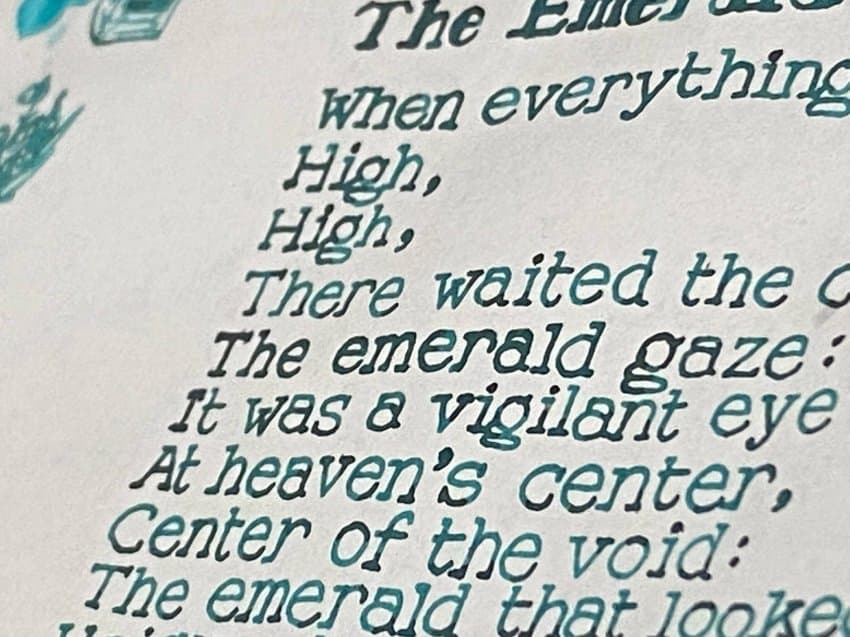 The
When everything
High,
High,
There waited the
The emerald gaze:
It was a vigilant eye
At heaven's center,
Center of the void:
The emerald that looked